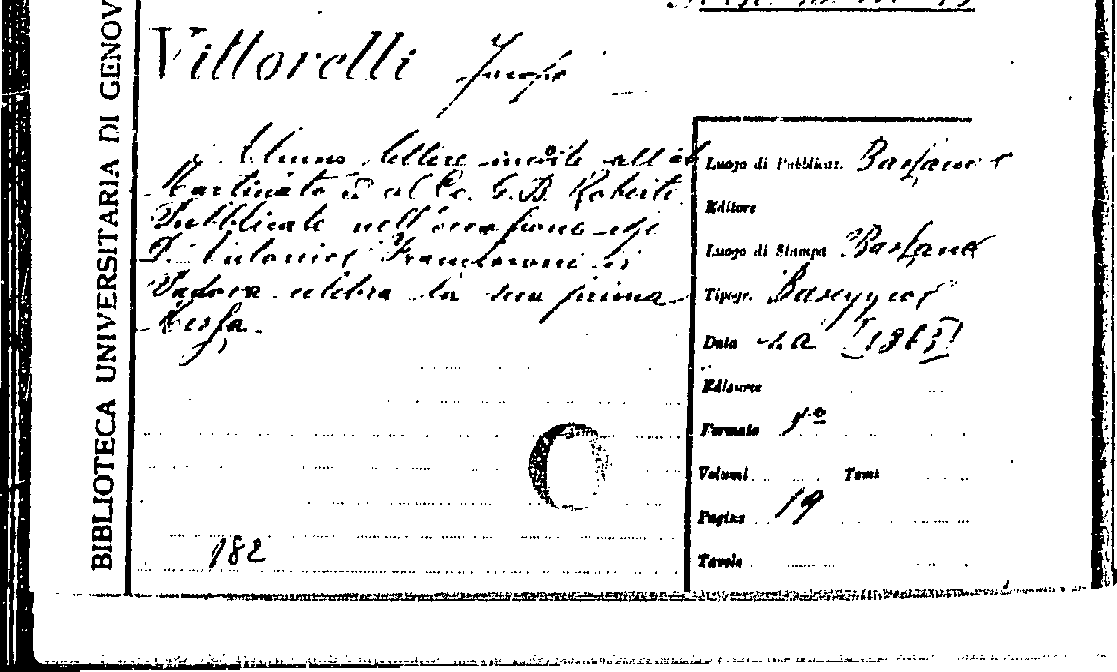 BIBLIOTECA UNIVERSITARIA DI GENOV
Vittorelli Jacopo
Alcune lettere inedite all'ab
Martinato e al Co. G. B. Roberti.
Pubblicate nell'occasione
D. Antonio Franceroni di
Padova celebra la sua prima
Messa.
182
Luogo di Pubblicaz. Bassano
Editore
Luogo di Stampa Bassano
Tipogr. Baseggio
Data s.a [1863]
Edizione
Formato 8º
Volumi Tomi
Pagine 19
Tavole